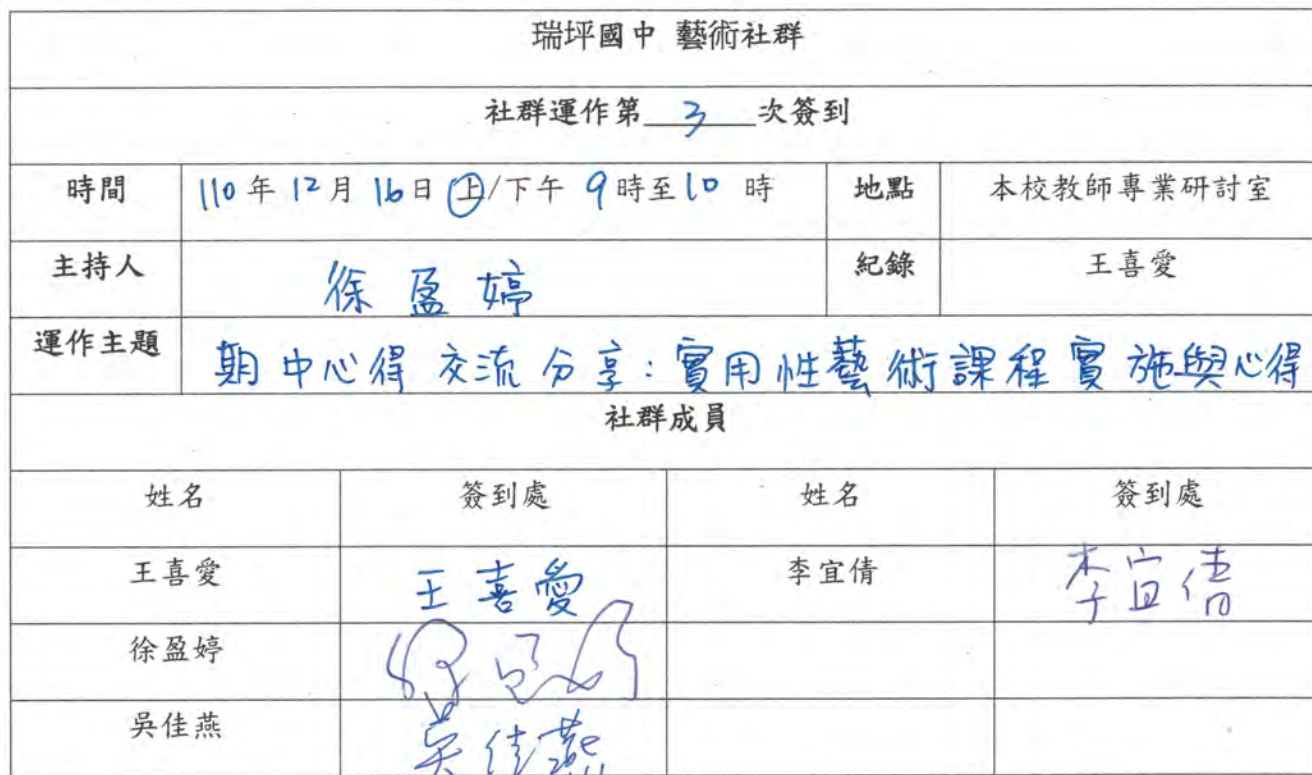 瑞坪國中 藝術社群
社群運作第 3 次簽到
時間 110年12月16日 上/下午 9時至10時 地點 本校教師專業研討室
主持人 徐盈婷 紀錄 王喜愛
運作主題 期中心得交流分享:實用性藝術課程實施與心得
社群成員
姓名 簽到處 姓名 簽到處
王喜愛 王喜愛 李宜倩 李宜倩
徐盈婷 徐盈婷
吳佳燕 吳佳燕